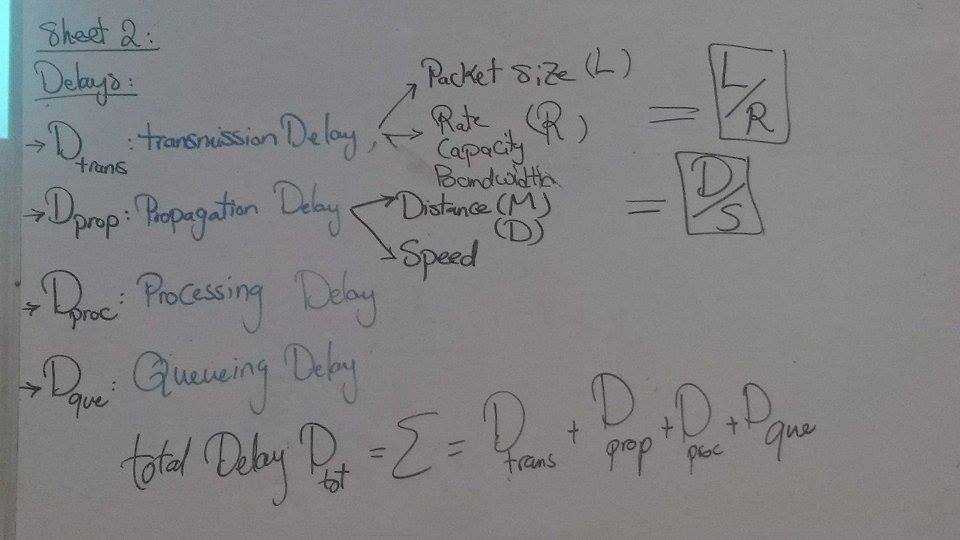 Sheet 2:
Delays:
→ D trans : transmission Delay, → Packet size (L)
→ Rate (R) = L/R
Capacity
Bandwidth
→ D prop : Propagation Delay → Distance (M) = D/S
(D)
→ Speed
→ D proc : Processing Delay
→ D que : Queueing Delay
total Delay D tot = Σ = D trans + D prop + D proc + D que